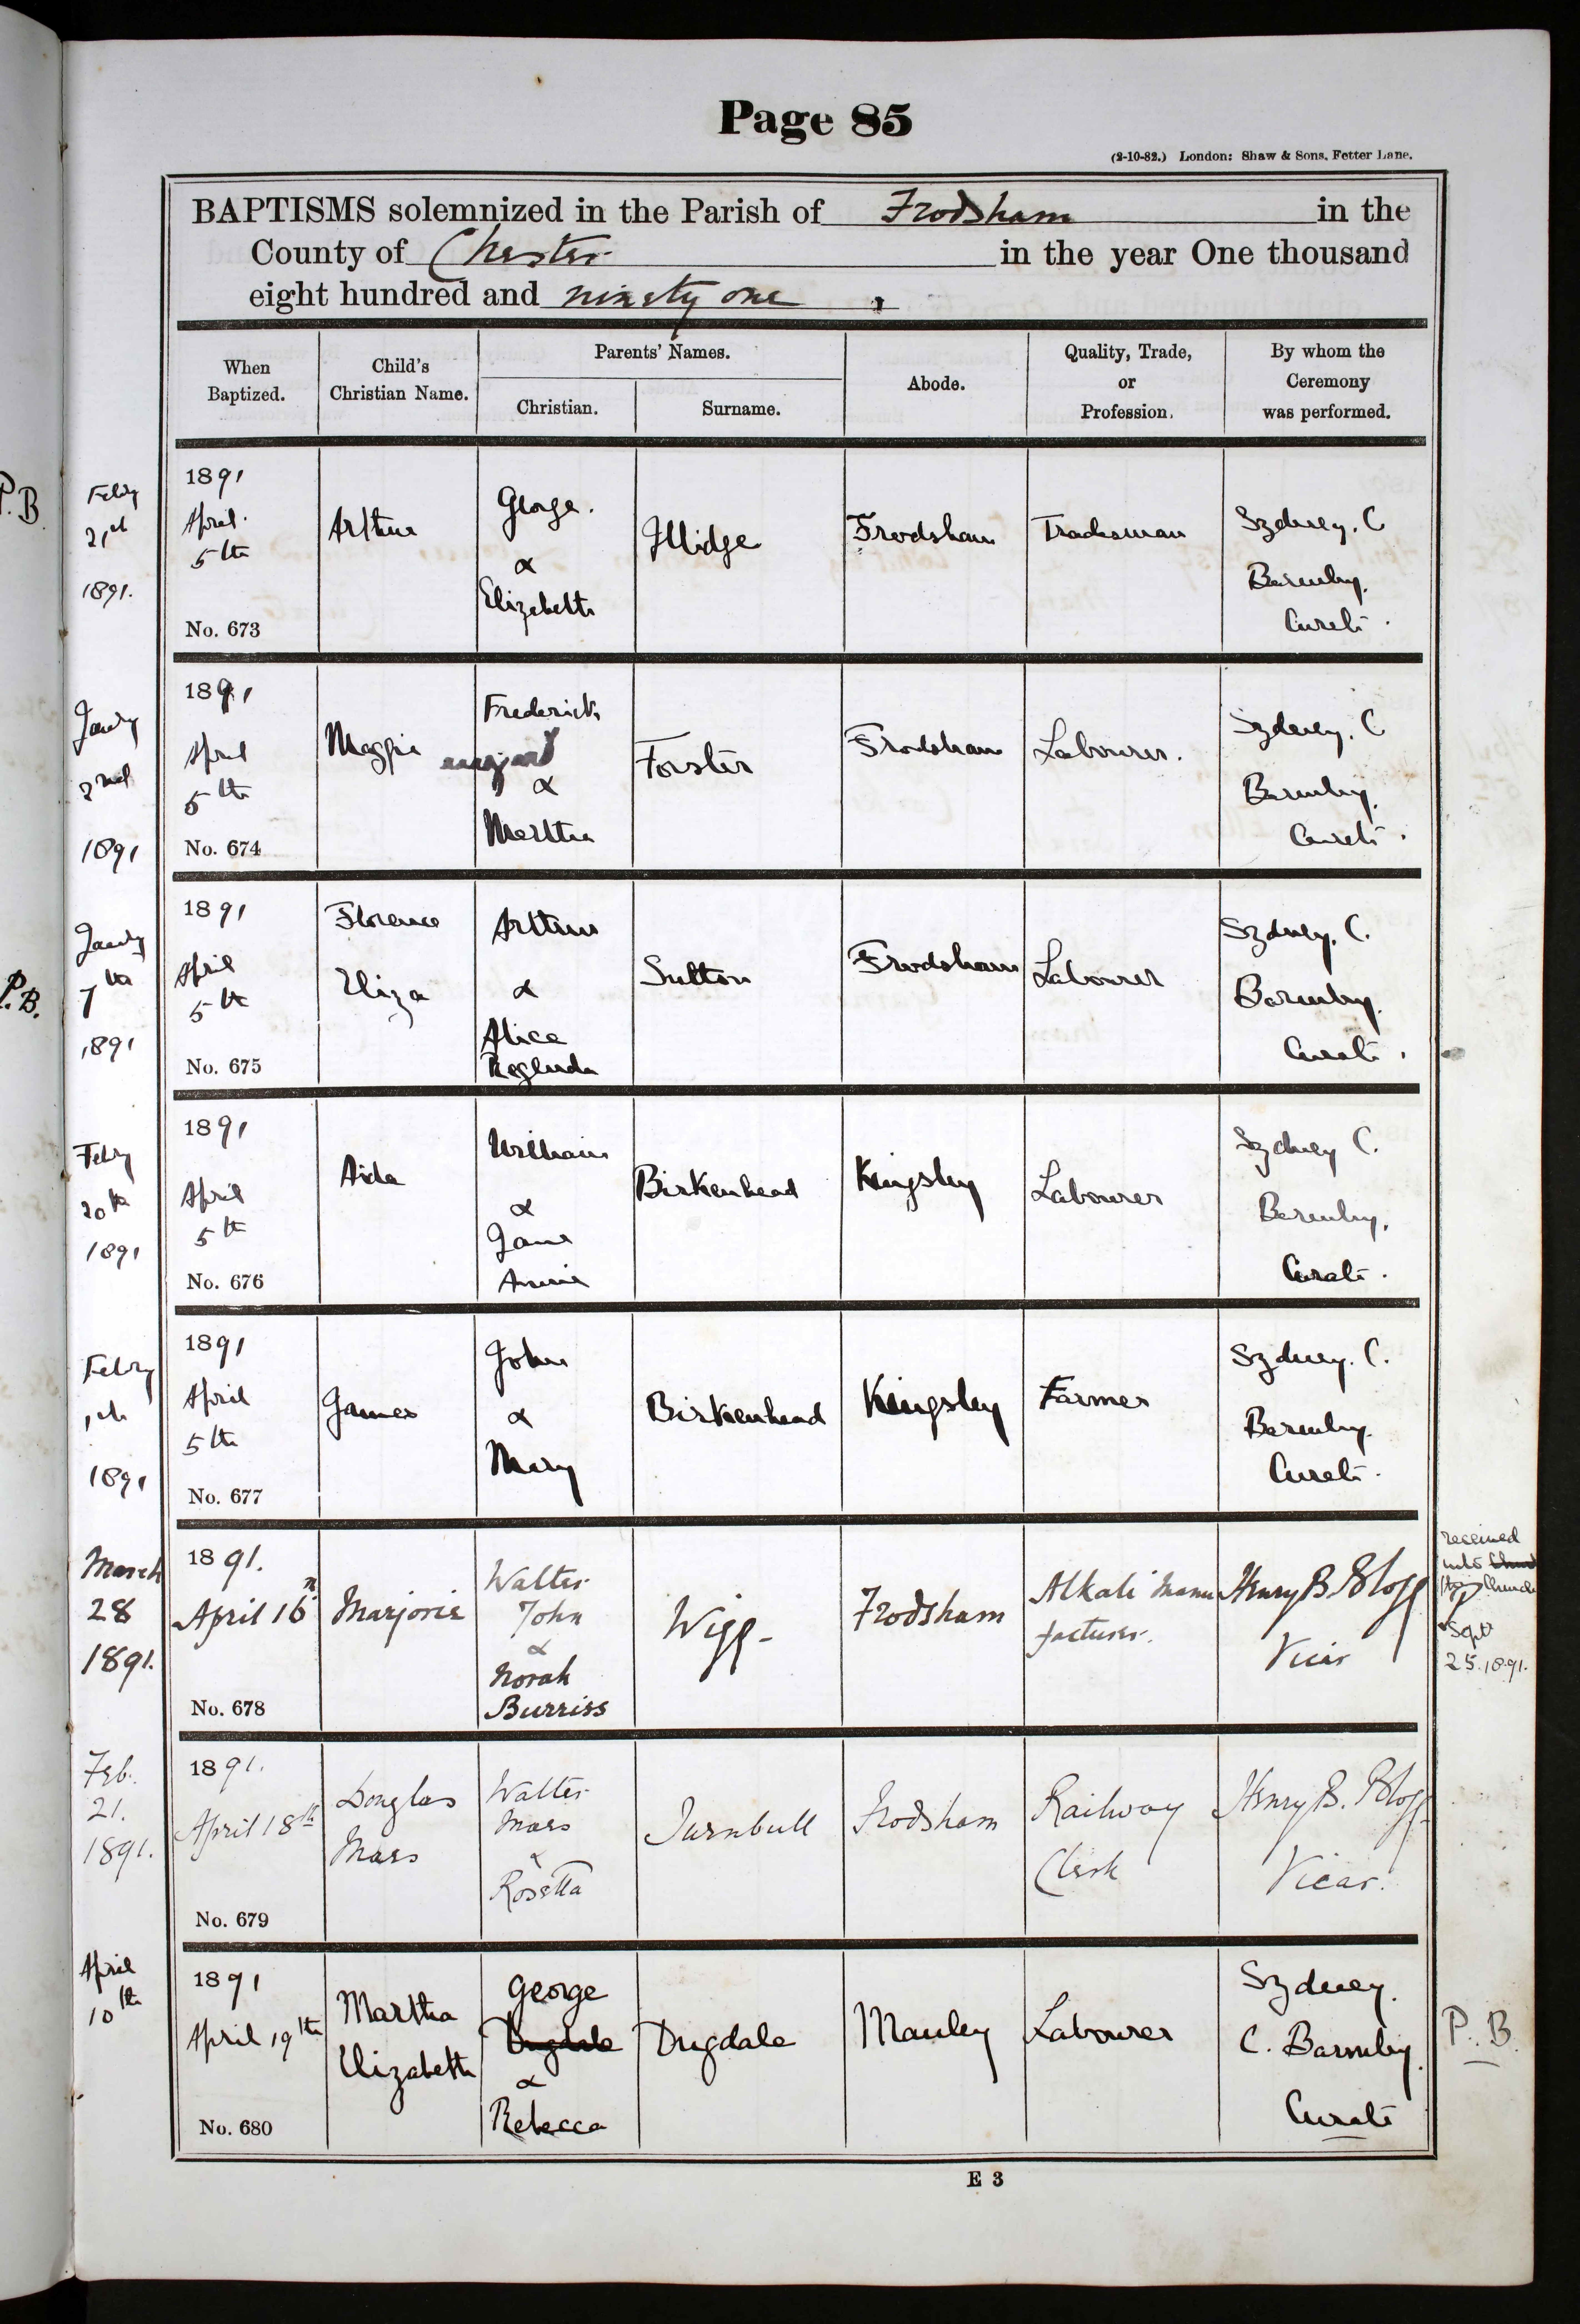 Page 85
(2-10-82.) London: Shaw & Sons, Fetter Lane.
BAPTISMS solemnized in the Parish of Frodsham in the
County of Chester in the year One thousand
eight hundred and ninety one
When Baptized.
Child's Christian Name.
Parents' Names.
Christian.
Surname.
Abode.
Quality, Trade, or Profession.
By whom the Ceremony was performed.
P.B
Febry
21st
1891.
1891
April
5th
No. 673
Arthur
George.
&
Elizabeth
Illidge
Frodsham
Tradesman
Sydney. C
Barmby.
Curate.
Jany
2nd
1891
1891
April
5th
No. 674
Maggie
Frederick
&
Martha
Forster
Frodsham
Labourer.
Sydney. C
Barmby.
Curate.
P.B.
Jany
7th
1891
1891
April
5th
No. 675
Florence
Eliza
Arthur
&
Alice
Sutton
Frodsham
Labourer
Sydney. C.
Barmby.
Curate.
Febry
20th
1891
1891
April
5th
No. 676
Aida
William
&
Jane
Annie
Birkenhead
Kingsley
Labourer
Sydney C.
Barmby.
Curate.
Febry
1st
1891
1891
April
5th
No. 677
James
John
&
Mary
Birkenhead
Kingsley
Farmer
Sydney. C.
Barmby.
Curate.
March
28
1891.
1891.
April 16
No. 678
Marjorie
Walter
John
&
Norah
Burriss
Wigg
Frodsham
Alkali Manu
facturer.
Henry B. Blogg
Vicar
received
into
Church
Sept
25.1891.
Feb.
21.
1891.
1891.
April 18th
No. 679
Douglas
Mars
Walter
Mars
&
Rosetta
Turnbull
Frodsham
Railway
Clerk
Henry B. Blogg
Vicar.
April
10th
1891
April 19th
No. 680
Martha
Elizabeth
George
Dugdale
&
Rebecca
Dugdale
Manley
Labourer
Sydney.
C. Barmby.
Curate
P. B.
E 3